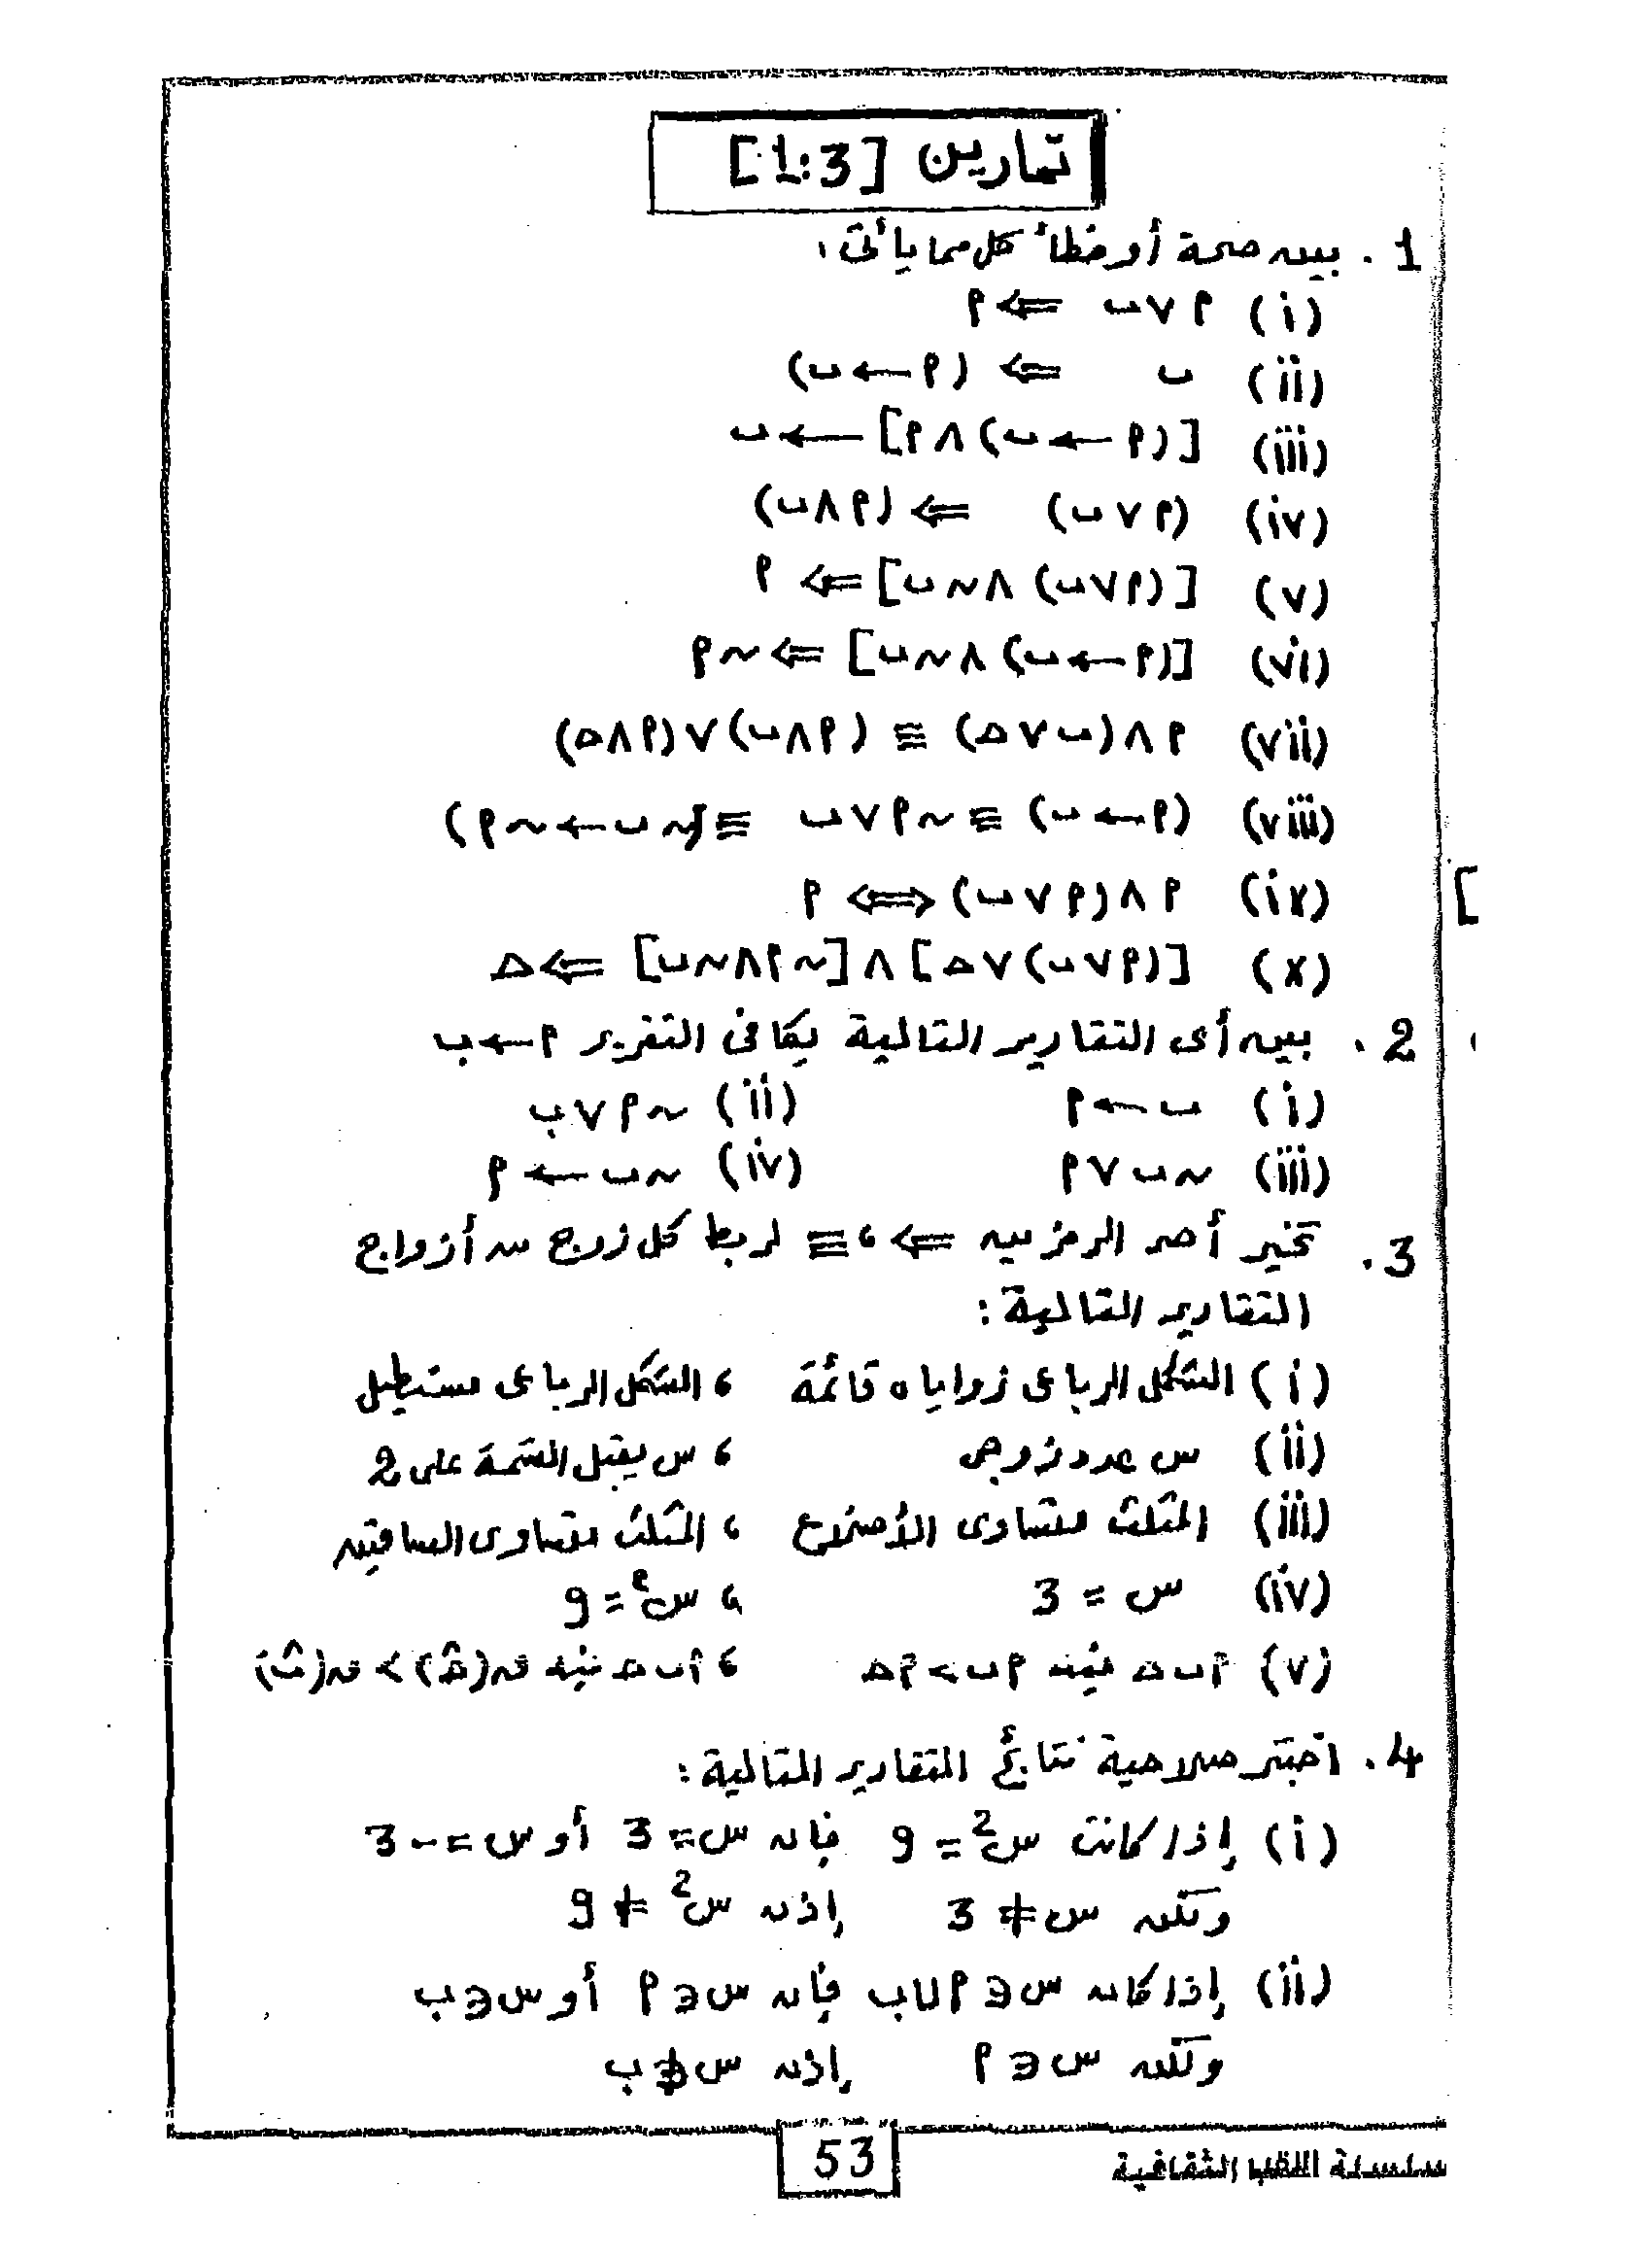 تمارين [1:3]
1. بين صحة أو خطأ كل مما يأتى:
(i) م ∨ ب ⇐ م
(ii) ب ⇐ (م ← ب)
(iii) [(م ← ب) ∧ م] ← ب
(iv) (م ∨ ب) ⇐ (م ∧ ب)
(v) [(م ∨ ب) ∧ ~ب] ⇐ م
(vi) [(م ← ب) ∧ ~ب] ⇐ ~م
(vii) م ∧ (ب ∨ ح) ≡ (م ∧ ب) ∨ (م ∧ ح)
(viii) (م ← ب) ≡ ~م ∨ ب ≡ (~ب ← ~م)
(ix) م ∧ (م ∨ ب) ⇔ م
(x) [(م ∨ ب) ∨ ح] ∧ [~م ∧ ~ب] ⇐ ح
2. بين أى التقارير التالية يكافئ التقرير م ← ب
(i) ب ← م (ii) ~م ∨ ب
(iii) ~ب ∨ م (iv) ~ب ← م
3. تخير أحد الرمزين ⇐ ، ≡ لربط كل زوج من أزواج
التقارير التالية:
(i) الشكل الرباعى زواياه قائمة ، الشكل الرباعى مستطيل
(ii) س عدد زوجى ، س يقبل القسمة على 2
(iii) المثلث متساوى الأضلاع ، المثلث متساوى الساقين
(iv) س = 3 ، س² = 9
(v) م ب ح فيه م ب > م ح ، م ب ح فيه ق(ح̂) > ق(ب̂)
4. اختبر صلاحية نتائج التقارير التالية:
(i) إذا كانت س² = 9 فإن س = 3 أو س = -3
ولكن س ≠ 3 إذن س² ≠ 9
(ii) إذا كان س ∋ م ∪ ب فإن س ∋ م أو س ∋ ب
ولكن س ∋ م إذن س ∌ ب
53
سلسلة اللقبا الثقافية